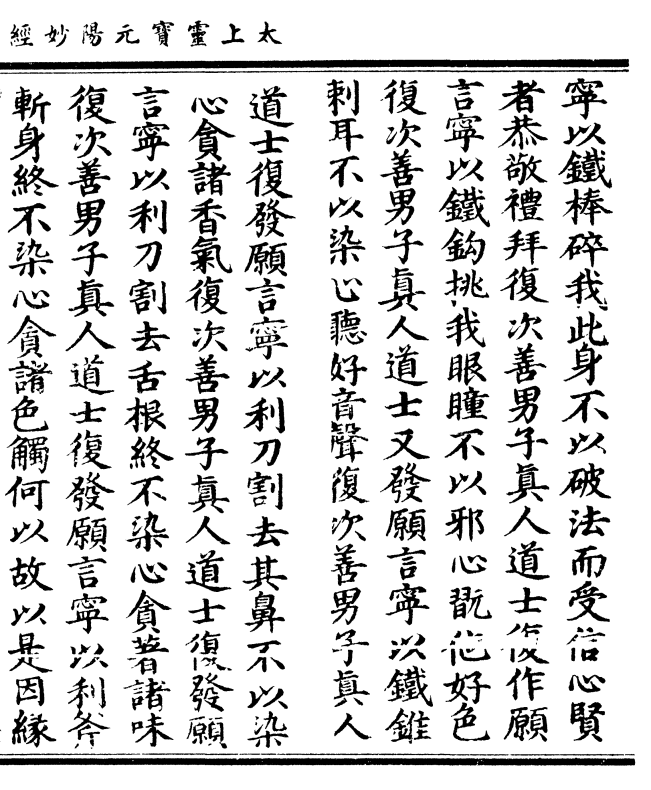 太上靈寶元陽妙經
寧以鐵棒碎我此身不以破法而受信心賢
者恭敬禮拜復次善男子真人道士復作願
言寧以鐵鈎挑我眼瞳不以邪心翫他好色
復次善男子真人道士又發願言寧以鐵錐
刺耳不以染心聽好音聲復次善男子真人
道士復發願言寧以利刀割去其鼻不以染
心貪諸香氣復次善男子真人道士復發願
言寧以利刀割去舌根終不染心貪著諸味
復次善男子真人道士復發願言寧以利斧
斬身終不染心貪諸色觸何以故以是因緣